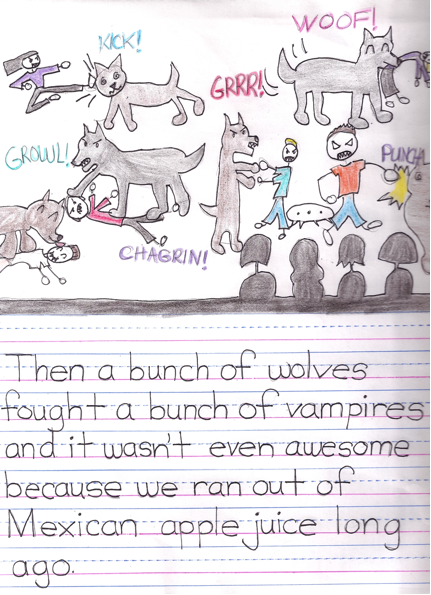 KICK!
WOOF!
GRRR!
GROWL!
PUNCH
CHAGRIN!
Then a bunch of wolves
fought a bunch of vampires
and it wasn't even awesome
because we ran out of
Mexican apple juice long
ago.